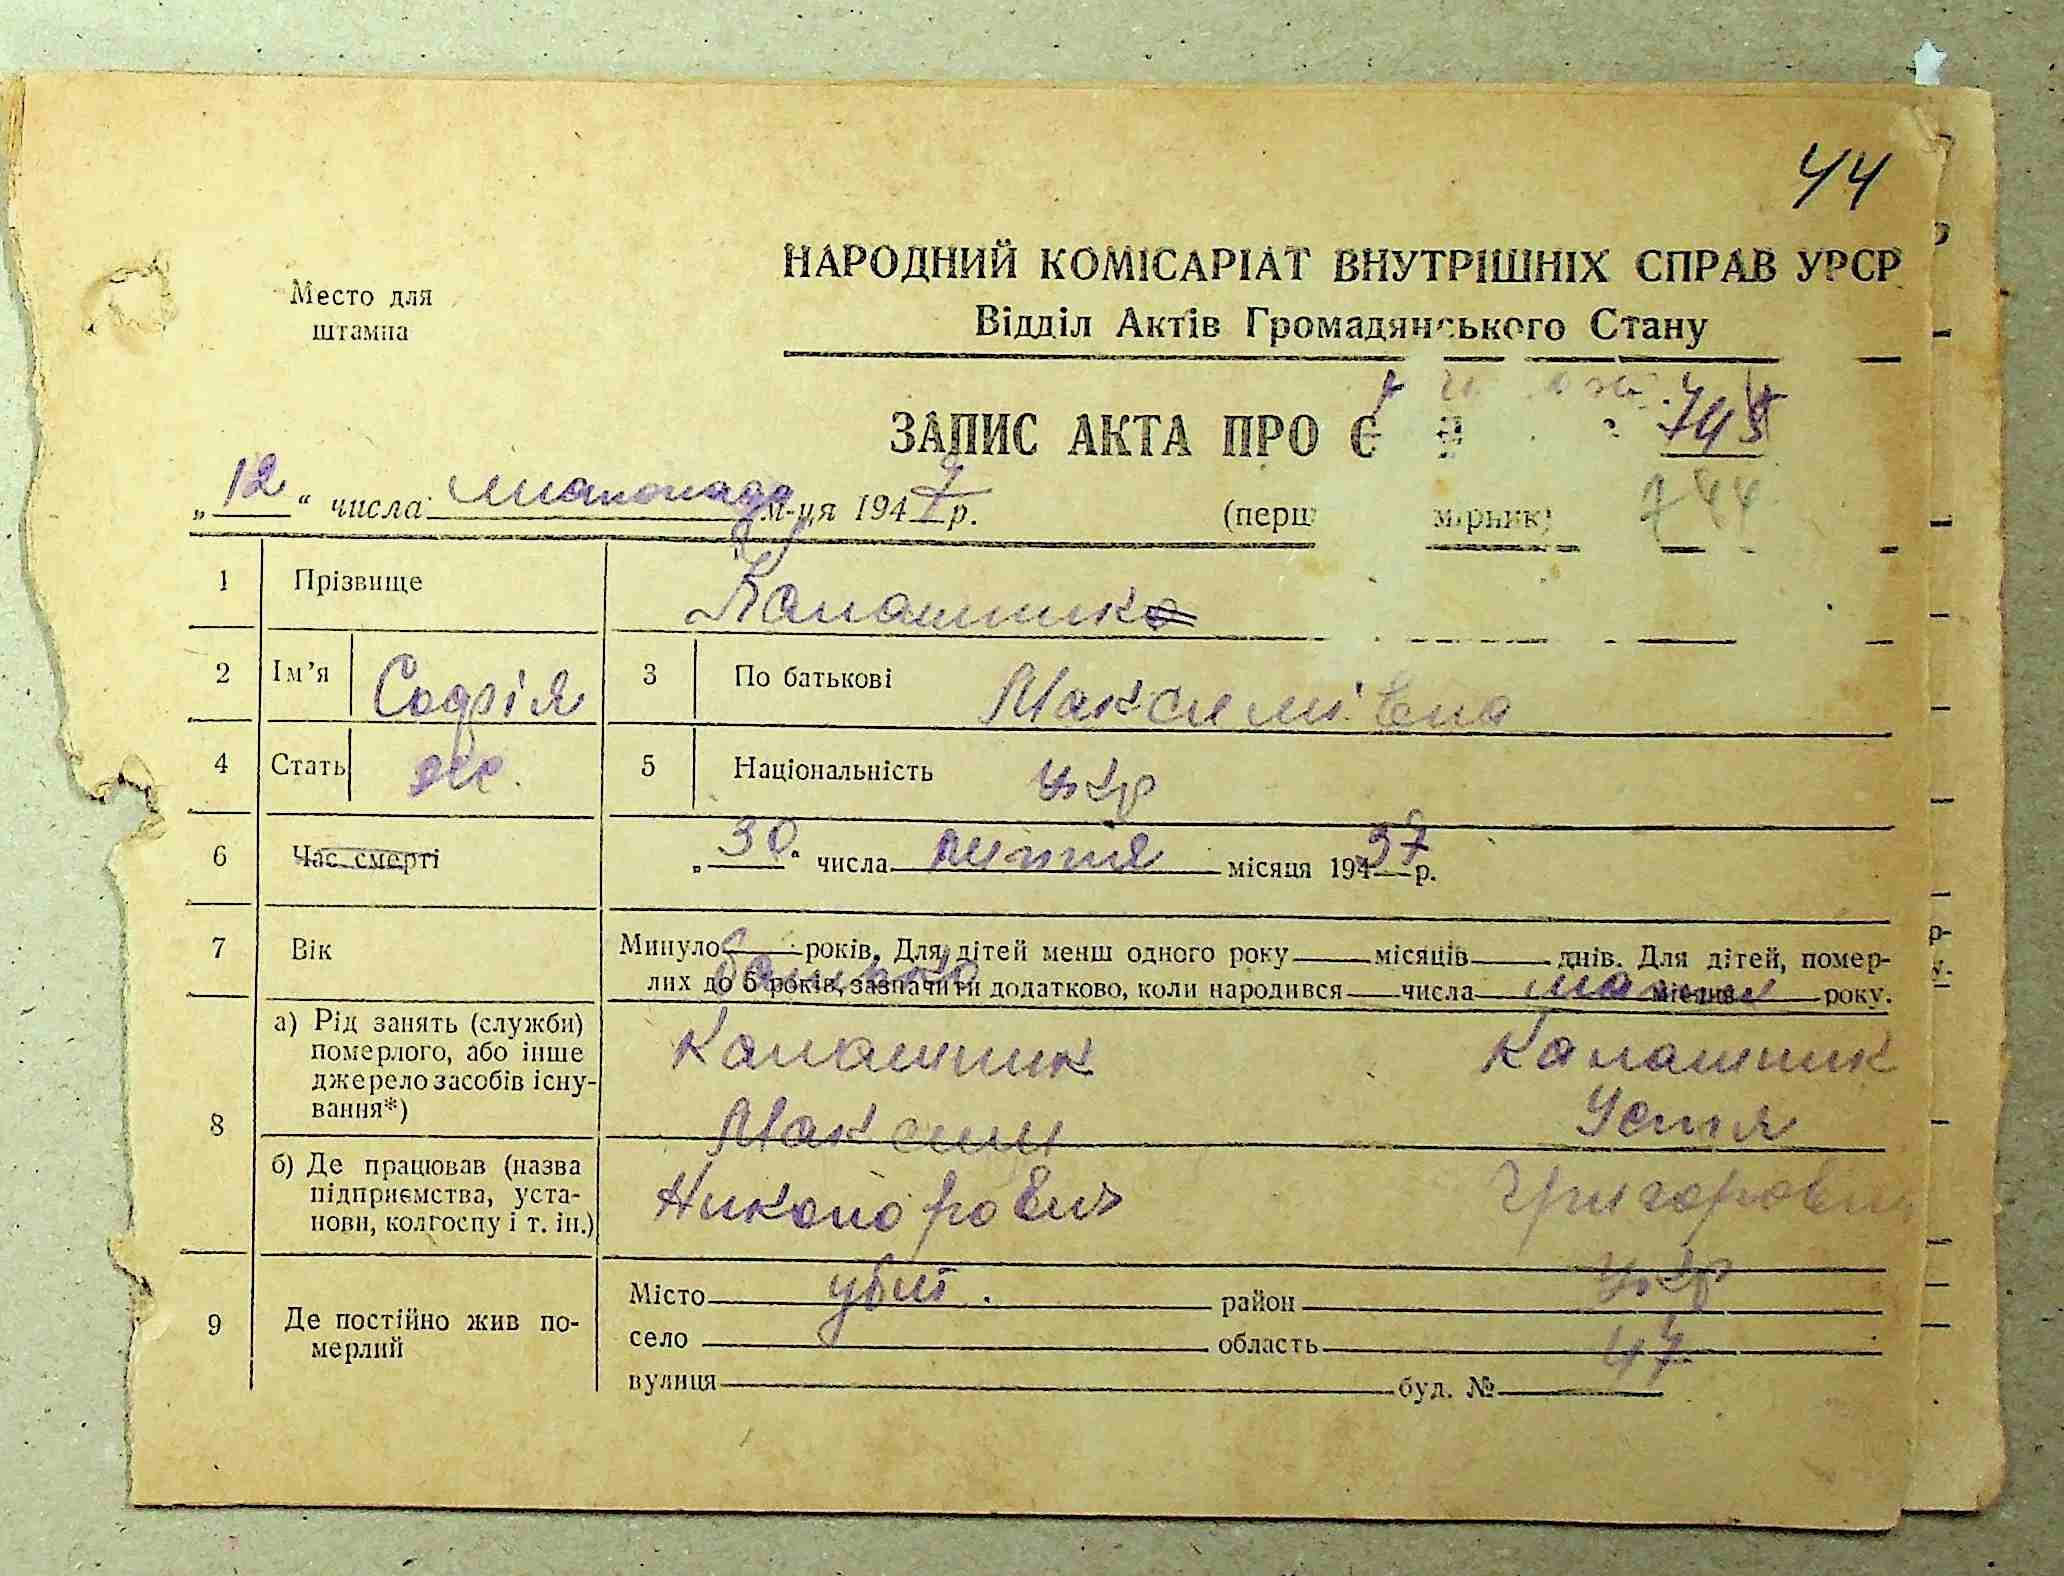 44
Место для
штампа
НАРОДНИЙ КОМІСАРІАТ ВНУТРІШНІХ СПРАВ УРСР
Відділ Актів Громадянського Стану
ЗАПИС АКТА ПРО
„12“ числа листопада м-ця 194 р.
744
1 Прізвище Калашник
2 Ім’я Софія 3 По батькові Максимівна
4 Стать жс. 5 Національність укр
6 Час смерті „30“ числа липня місяця 1937 р.
7 Вік Минуло років. Для дітей менш одного року місяців днів. Для дітей, помер-
лих до 5 років, зазначити додатково, коли народився числа місяця року.
батько мати
8 а) Рід занять (служби)
померлого, або інше
джерело засобів існу-
вання*)
Калашник Калашник
Максим Устя
б) Де працював (назва
підприємства, уста-
нови, колгоспу і т. ін.)
Никонорович Григоровн
9 Де постійно жив по-
мерлий
Місто убит. район укр
село область 47
вулиця буд. №